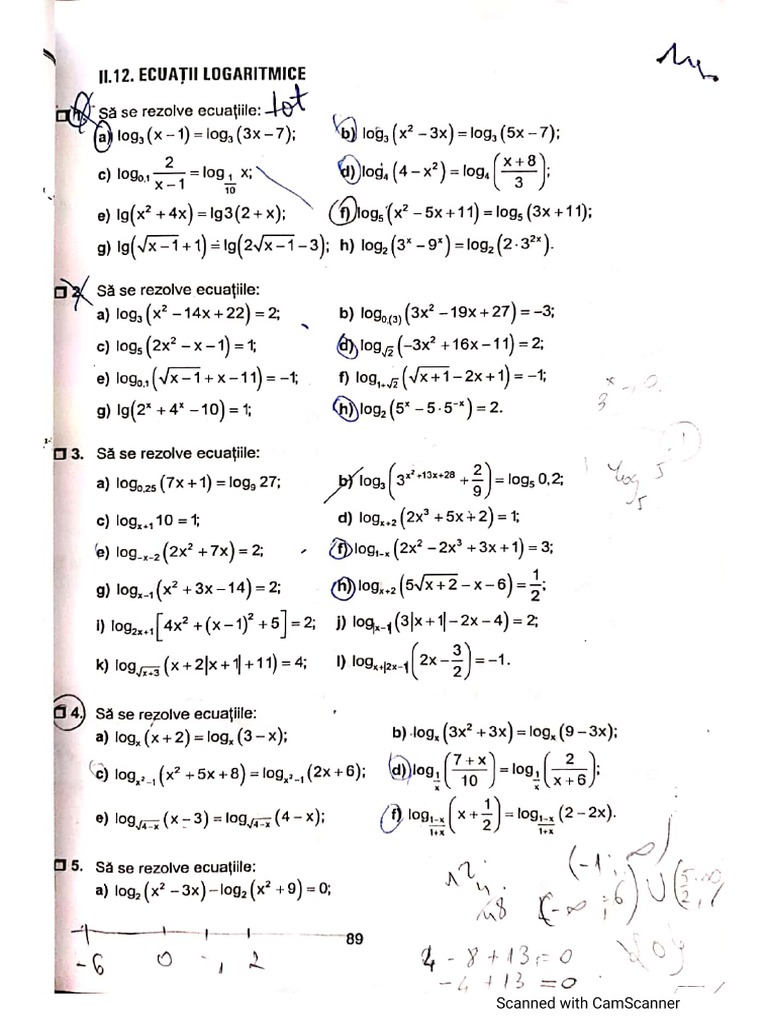 II.12. ECUAȚII LOGARITMICE
1. Să se rezolve ecuațiile: tot
a) log₃(x − 1) = log₃(3x − 7); b) log₃(x² − 3x) = log₃(5x − 7);
c) log₀,₁ 2/(x − 1) = log_(1/10) x; d) log₄(4 − x²) = log₄((x + 8)/3);
e) lg(x² + 4x) = lg3(2 + x); f) log₅(x² − 5x + 11) = log₅(3x + 11);
g) lg(√(x − 1) + 1) = lg(2√(x − 1) − 3); h) log₂(3ˣ − 9ˣ) = log₂(2 · 3²ˣ).
2. Să se rezolve ecuațiile:
a) log₃(x² − 14x + 22) = 2; b) log₀,₍₃₎(3x² − 19x + 27) = −3;
c) log₅(2x² − x − 1) = 1; d) log_√2(−3x² + 16x − 11) = 2;
e) log₀,₁(√(x − 1) + x − 11) = −1; f) log_(1+√2)(√(x + 1) − 2x + 1) = −1;
g) lg(2ˣ + 4ˣ − 10) = 1; h) log₂(5ˣ − 5 · 5⁻ˣ) = 2.
3. Să se rezolve ecuațiile:
a) log₀,₂₅(7x + 1) = log₉ 27; b) log₃(3^(x²+13x+28) + 2/9) = log₅ 0,2;
c) log_(x+1) 10 = 1; d) log_(x+2)(2x³ + 5x + 2) = 1;
e) log_(−x−2)(2x² + 7x) = 2; f) log_(1−x)(2x² − 2x³ + 3x + 1) = 3;
g) log_(x−1)(x² + 3x − 14) = 2; h) log_(x+2)(5√(x + 2) − x − 6) = 1/2;
i) log_(2x+1)[4x² + (x − 1)² + 5] = 2; j) log_|x−1|(3|x + 1| − 2x − 4) = 2;
k) log_√(x+3)(x + 2|x + 1| + 11) = 4; l) log_(x+|2x−1|)(2x − 3/2) = −1.
4. Să se rezolve ecuațiile:
a) logₓ(x + 2) = logₓ(3 − x); b) logₓ(3x² + 3x) = logₓ(9 − 3x);
c) log_(x²−1)(x² + 5x + 8) = log_(x²−1)(2x + 6); d) log_(1/x)((7 + x)/10) = log_(1/x)(2/(x + 6));
e) log_√(4−x)(x − 3) = log_√(4−x)(4 − x); f) log_((1−x)/(1+x))(x + 1/2) = log_((1−x)/(1+x))(2 − 2x).
5. Să se rezolve ecuațiile:
a) log₂(x² − 3x) − log₂(x² + 9) = 0;
89
-6 0 2
4 - 8 + 13 = 0
-4 + 13 = 0
Scanned with CamScanner